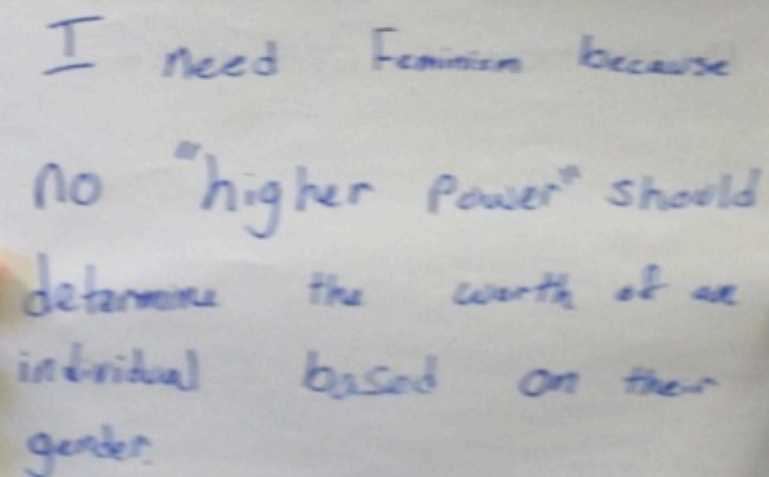 I need Feminism because
no "higher power" should
determine the worth of an
individual based on their
gender.